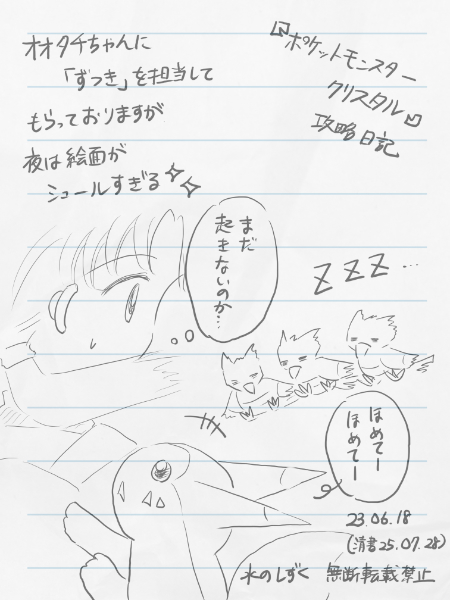 『ポケットモンスター
クリスタル』
攻略日記
オオタチちゃんに
「ずつき」を担当して
もらっておりますが
夜は絵面が
シュールすぎる
まだ
起きないのか…
ZZZ…
ほめてー
ほめてー
23.06.18
(清書25.07.28)
水のしずく 無断転載禁止